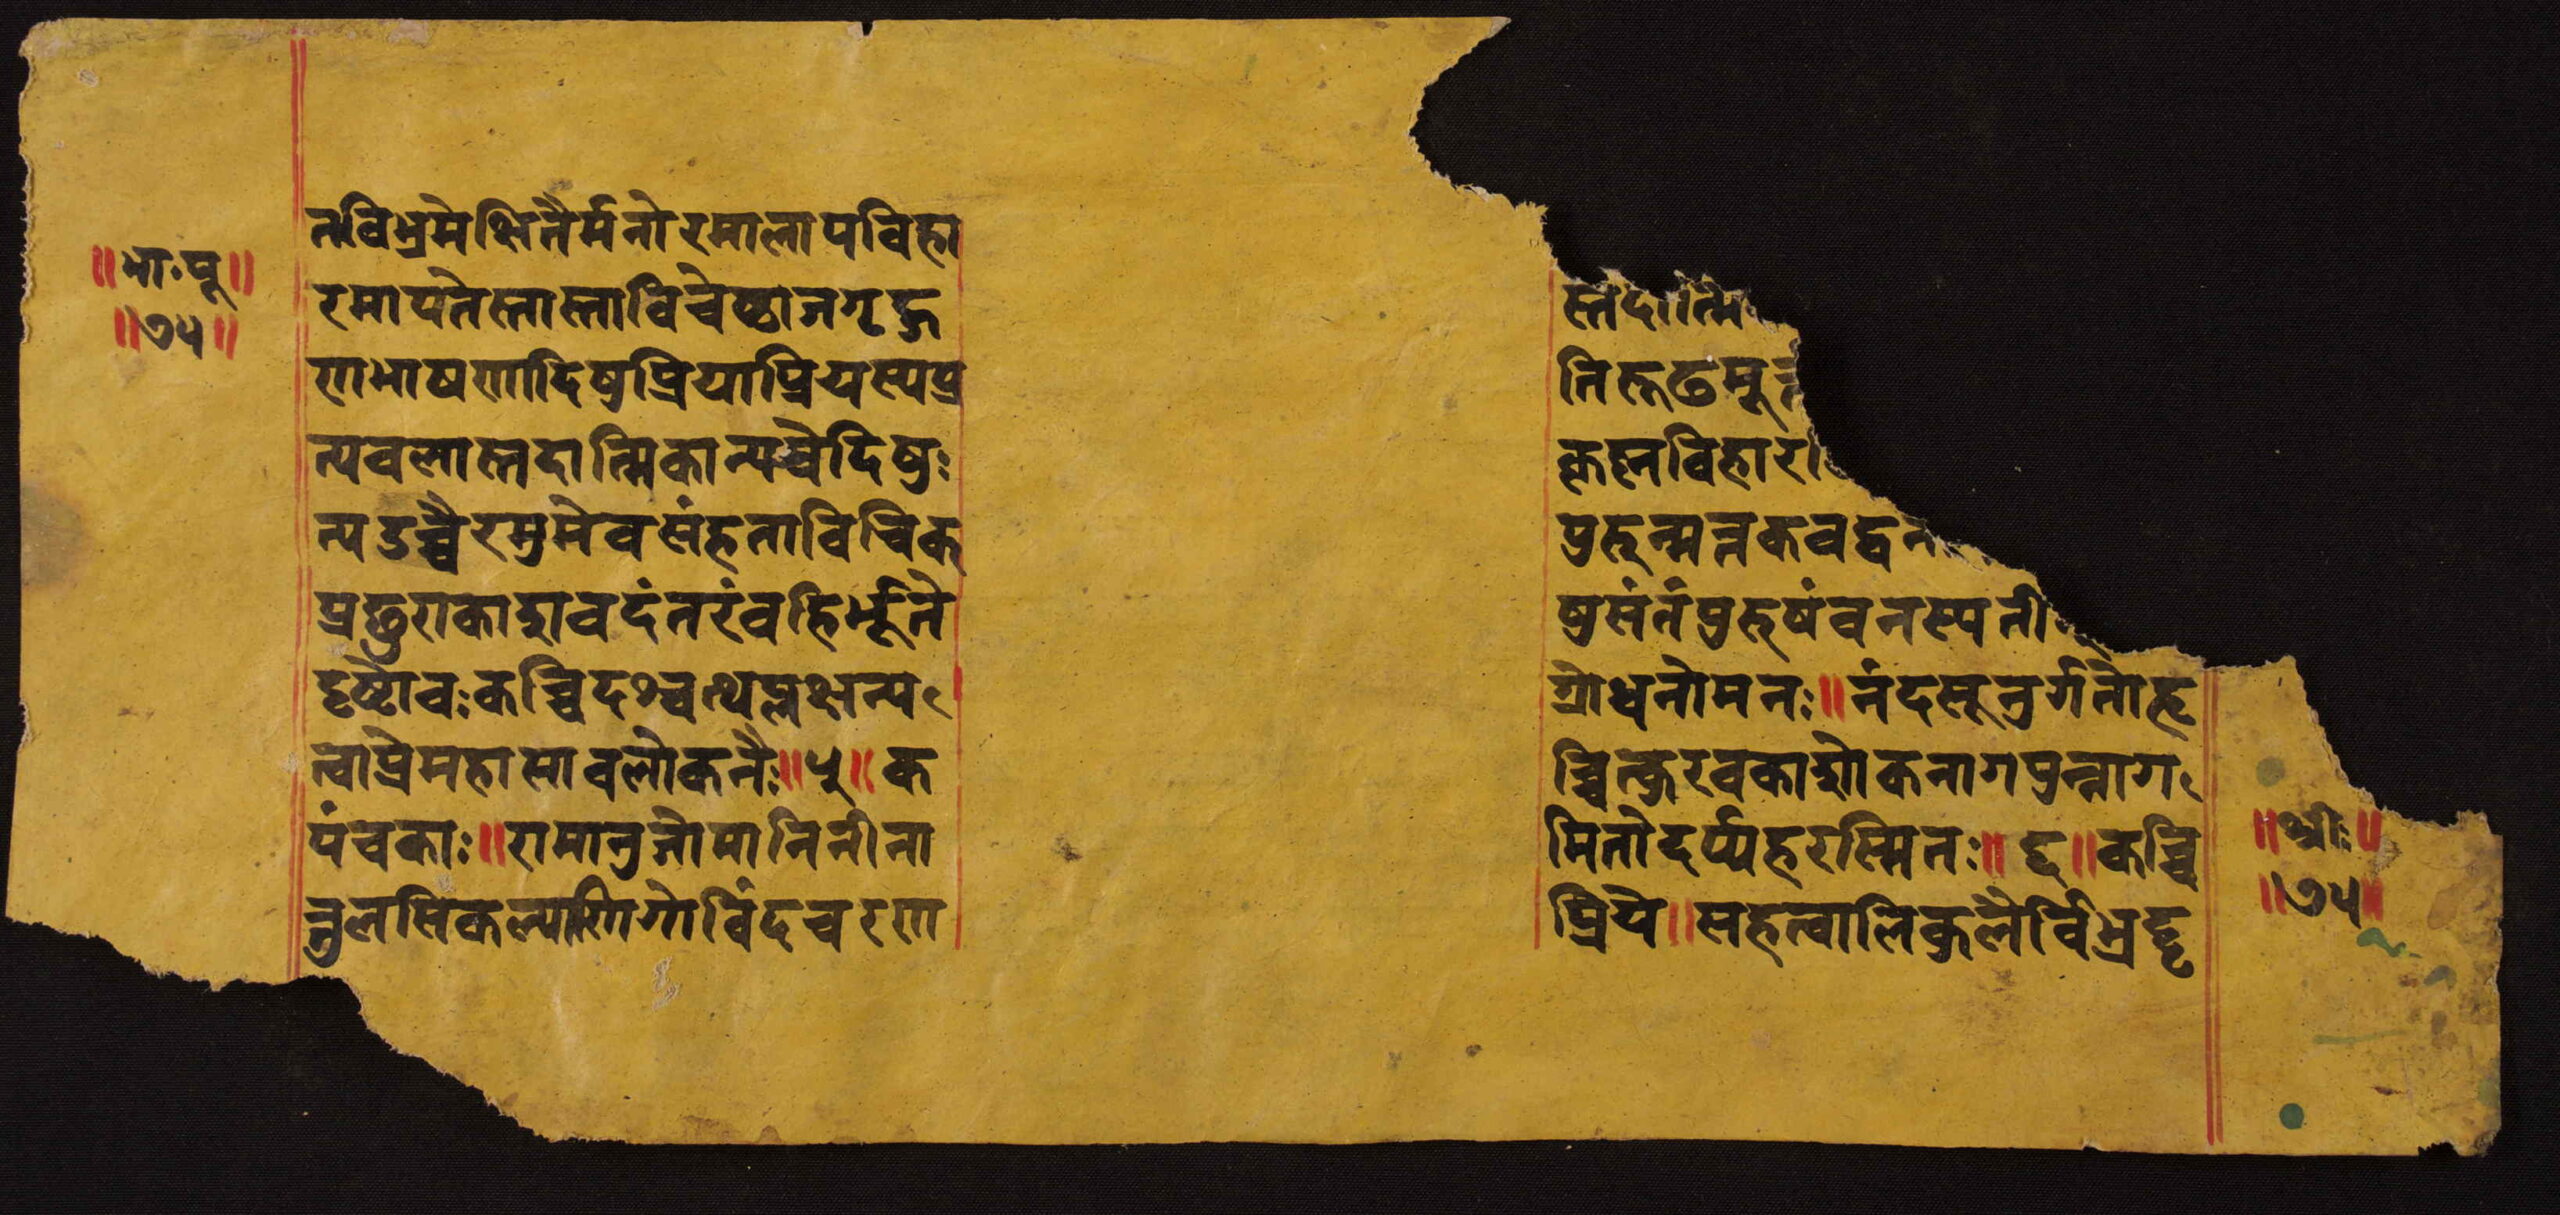 ॥भाः पू॥
॥७५॥
तविभ्रमेक्षितैर्मनोरमालापविहा
रमापतेस्तास्ताविचेष्टाजगृहु
णाभाषणादिषुप्रियाप्रियस्यप्र
त्यवलास्तदात्मिकान्यवेदिषुः
न्यउच्चैरमुमेवसंहताविचिक्
प्रछुराकाशवदंतरंवहिर्भूते
दृष्टोवःकच्चिदश्वत्थप्लक्षन्य
त्वाप्रेमहासावलोकनैः॥५॥क
पंचकाः॥रामानुजोमानिनीना
त्तुलसिकल्याणिगोविंदचरणा
स्तदात्मि
तिरूढमू
कृष्नविहार
पुरून्मत्तकवद्वन
षुसंतंपुरुषंवनस्पती
ग्रोधनोमनः॥नंदसूनुर्गतोहृ
च्चित्कुरवकाशोकनागपुन्नाग
मितोदर्प्पहरस्मितः॥६॥कच्चि
प्रिये॥सहत्वालिकुलैर्विभ्रद्दृ
॥श्रीः॥
॥७५॥